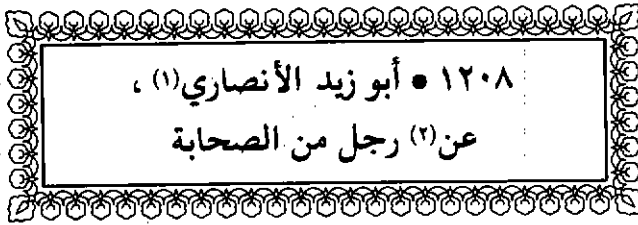 ١٢٠٨ • أبو زيد الأنصاري(١) ،
عن(٢) رجل من الصحابة